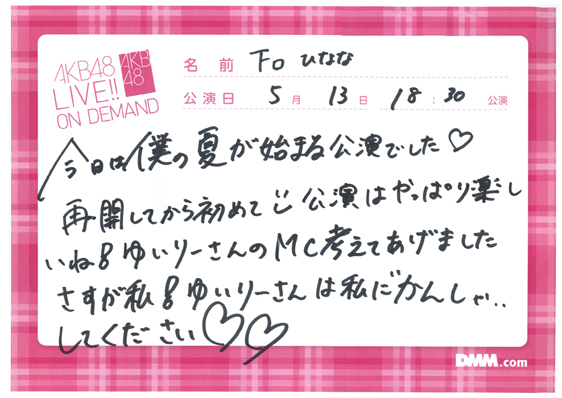 AKB48
LIVE!!
ON DEMAND
AKB
48
名前 Fo ひなな
公演日 5月13日 18:30 公演
今日は僕の夏が始まる公演でした♡
再開してから初めて 公演はやっぱり楽し
いね8 ゆいりーさんのMC考えてあげました
さすが私8 ゆいりーさんは私にかんしゃ..
してください♡♡
DMM.com